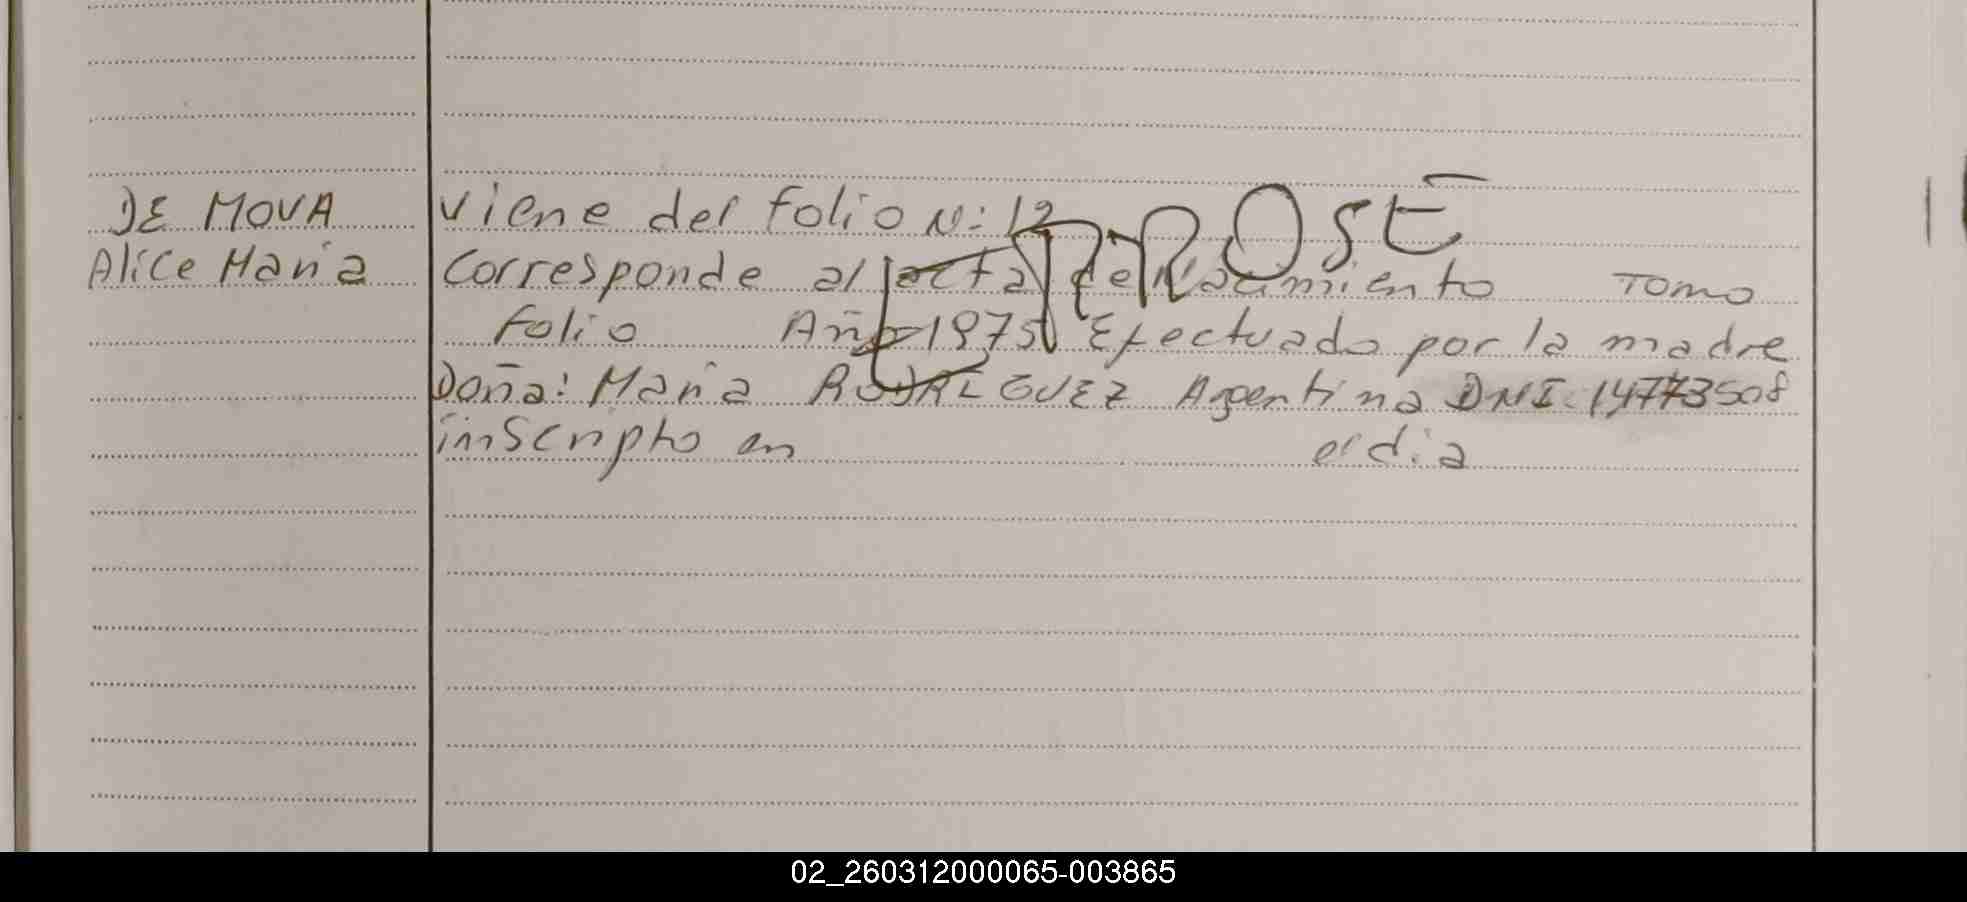 DE MOVA
Alice María
viene del folio N: 12
corresponde al acta de Nacimiento Tomo
folio Año 1975 Efectuado por la madre
Doña: María RODRIGUEZ Argentina DNI. 14773508
inscripto en el dia
02_260312000065-003865